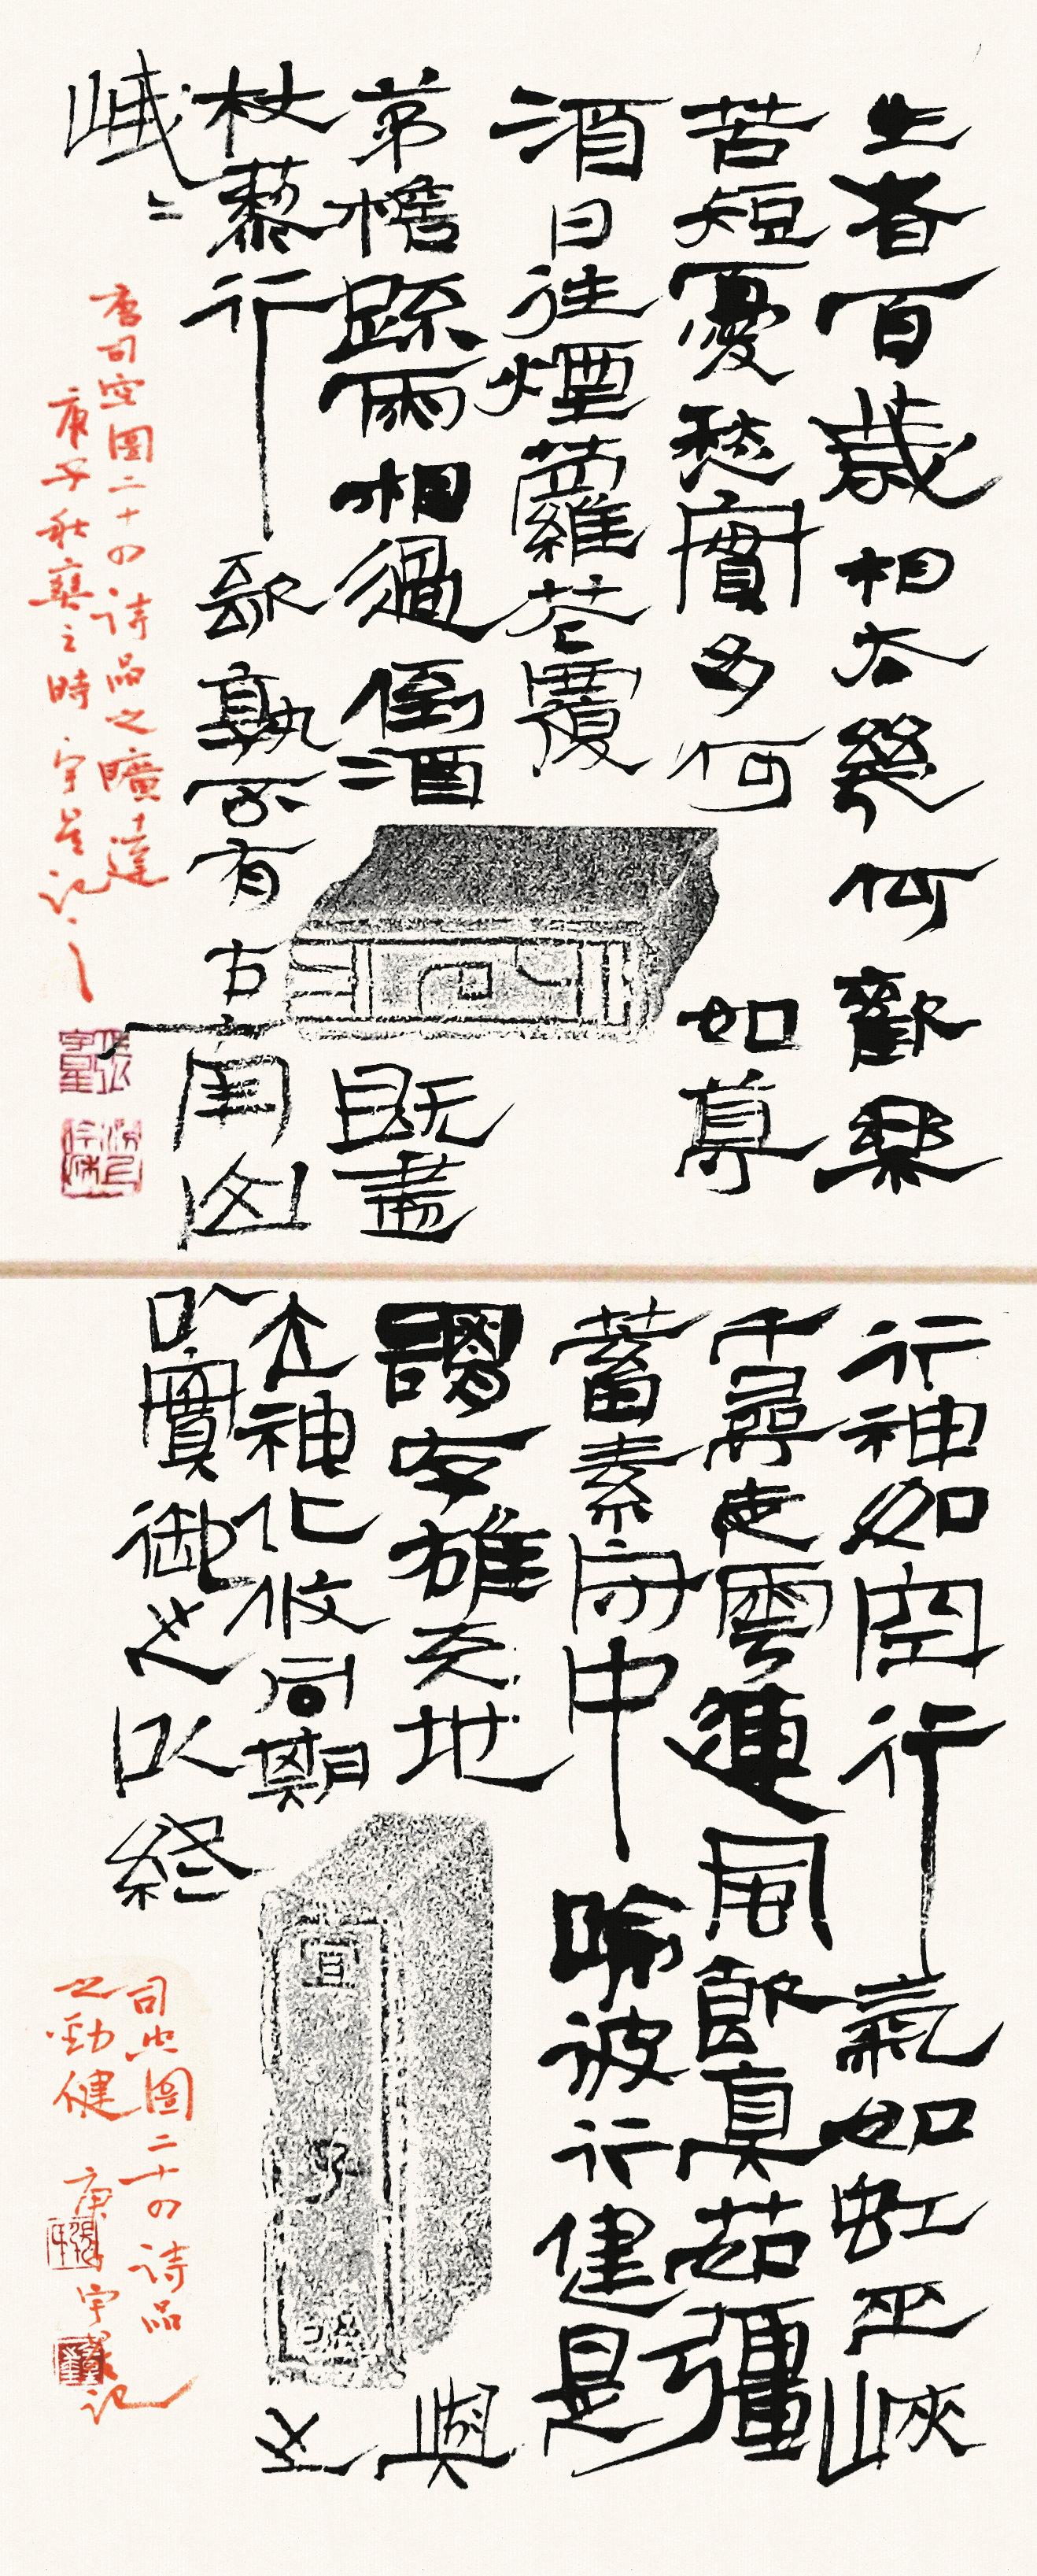 生者百歲相去幾何歡樂
苦短憂愁實多何如尊
酒日往煙蘿花覆
茅檐疏雨相過倒酒既盡
杖藜行歌孰不有古南山
峨〻
唐司空圖二十四詩品之曠達
庚子秋葵之時宇星記之
行神如空行氣如虹巫峽
千尋走雲連風飲真茹彊
蓄素守中喻彼行健是
謂存雄天地與
立神化攸同期之
以實御之以終
宜子孫
司空圖二十四詩品
之勁健 庚子宇星記